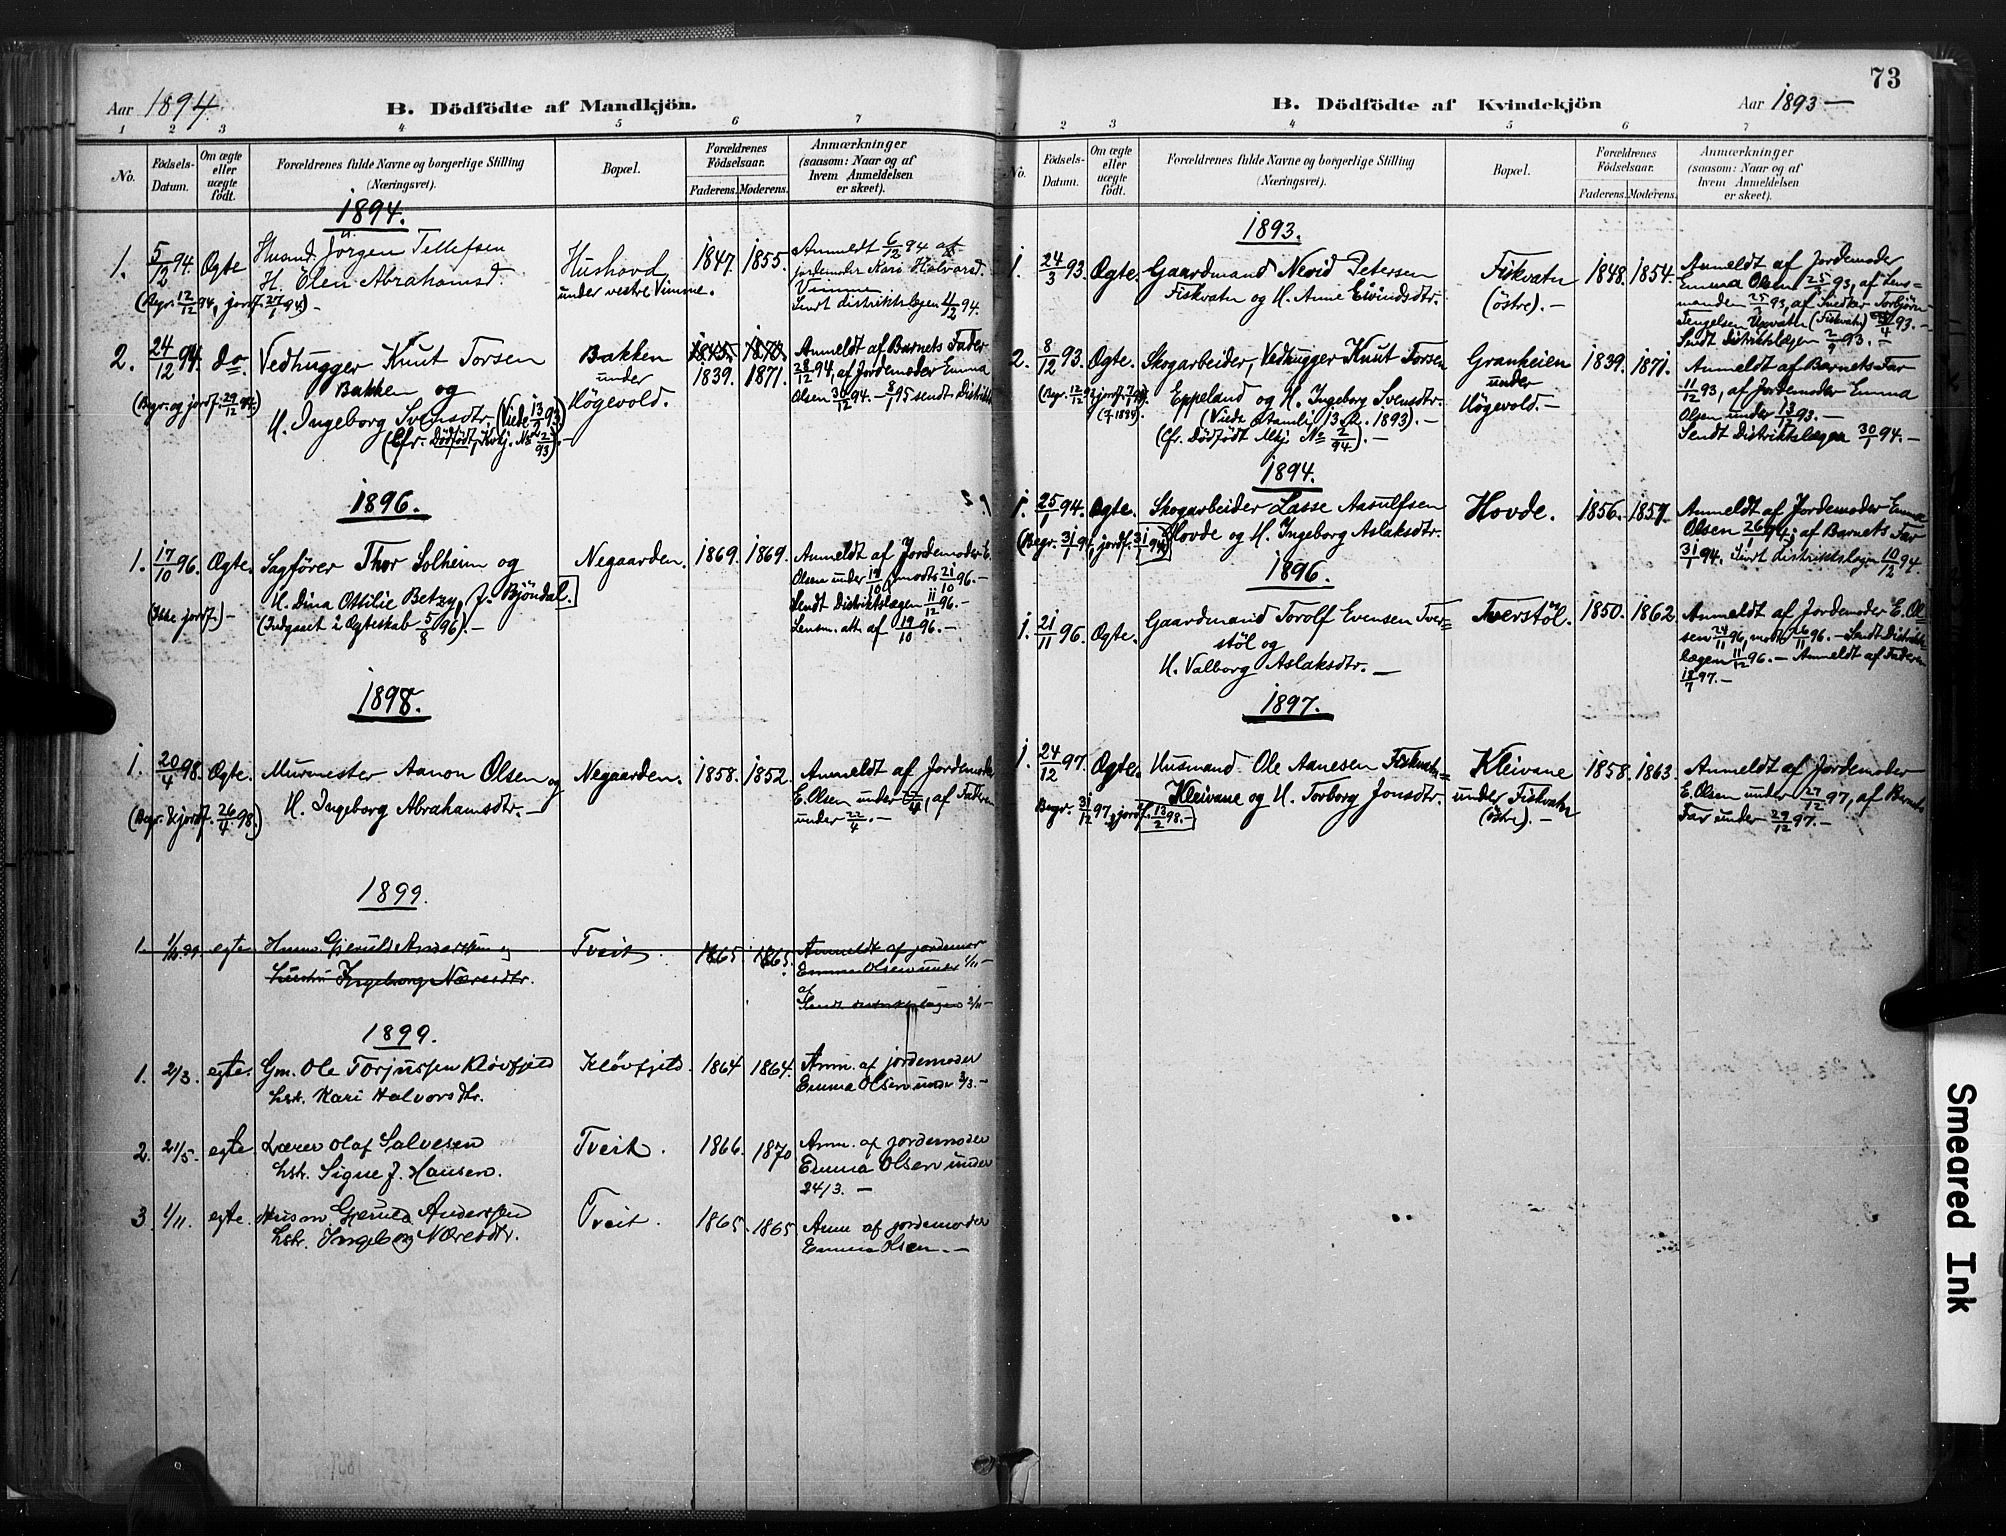 Aar 1894.
B. Dödfödte af Mandkjön.
1 2 3 4 5 6 7
No.
Födsels-Datum.
Om ægte eller uægte födt.
Forældrenes fulde Navne og borgerlige Stilling (Næringsvei).
Bopæl.
Forældrenes Födselsaar.
Faderens. Moderens.
Anmærkninger (saasom: Naar og af hvem Anmeldelsen er skeet).
1894.
1. 5/12 94. Ægte Husmd. Jörgen Tellefsen Hushovd 1847. 1855. Anmeldt 6/12 94 af
H. Elen Abrahamsd. under vestre Vimme. jordemoder Kari Halvorsd.
(Begr. 12/12 94, jordf. 27/1 94.) Vimme
Sendt distriktslægen 94.
2. 24/12 94. do. Vedhugger Knut Torsen Bakken 1845. 1870. Anmeldt af Barnets Fader
Bakken og under 1839. 1871. 28/12 94, af Jordemoder Emma
(Begr. og jordf. 29/12 94.) H. Ingeborg Svensdtr. (Viede 13/2 93) Högevold. Olsen 30/12 94. – 8/1 95 sendt Distrikt
(Cfr. Dödfödt, Kvkj. No 2/93). –
1896.
1. 17/10 96. Ægte. Sagfører Thor Solheim og Negaarden. 1869. 1869. Anmeldt af Jordemoder E.
H. Dina Ottilie Betzy, f. Bjöndal. Olsen under 19/10, modt. 21/10 96. –
(Ikke jordf.) – (Indgaaet i Ægteskab 5/8 96). – Sendt Distriktslægen 11/12 96. –
Lensm. att. af 19/10 96. –
1898.
1. 20/4 98. Ægte. Murmester Aanon Olsen og Negaarden. 1858. 1852. Anmeldt af Jordemoder
H. Ingeborg Abrahamsdtr. – E. Olsen under, af Faderen
(Begr. & jordf. 26/4 98.) under 22/4. –
1899.
1. egte Gjeruld Anderssen og Tveit. 1865 1865. Anmeldt af jordemor
hustru Ingeborg Næresdtr. Emma Olsen under 1/11 –
af
Sendt distriktslægen 2/11 –
1899.
1. 2/3. egte. Gm. Ole Torjussen Kløvfjeld Kløvfjeld. 1864 1864. Anm. af jordemoder
hstr. Kari Halvorsdtr. Emma Olsen under 3/3. –
2. 21/5. egte Lærer Olaf Salvesen Tveit. 1866. 1870 Anm. af jordemoder
hstr. Signe J. Hansen. Emma Olsen under
24/3. –
3. 1/11. egte. Husm. Gjeruld Anderssen Tveit. 1865. 1865 Anm af jordemoder
hstr. Ingeborg Næresdtr. Emma Olsen. –
73
B. Dödfödte af Kvindekjön
Aar 1893 –
1 2 3 4 5 6 7
No.
Födsels-Datum.
Om ægte eller uægte födt.
Forældrenes fulde Navne og borgerlige Stilling (Næringsvei).
Bopæl.
Forældrenes Födselsaar.
Faderens. Moderens.
Anmærkninger (saasom: Naar og af hvem Anmeldelsen er skeet).
1893.
1. 24/3 93. Ægte. Gaardmand Nerid Petersen Fiskvatn 1848. 1854. Anmeldt af Jordemoder
Fiskvatn og H. Anne Eivindsdtr. (östre). – Emma Olsen 25/3 93, af Lens=
manden 25/3 93, af Snedker Torbjörn
Tengelsen (Fiskvatn) 93. –
Sendt Distriktslægen 93. –
2. 8/12 93. Ægte. Skogarbeider, Vedhugger Knut Torsen Granheien 1839. 1871. Anmeldt af Barnets Far
Eppeland og H. Ingeborg Svensdtr. under 11/12 93, af Jordemoder Emma
(Viede 13 1893). – Högevold. – Olsen under 13/12 93. –
(Cfr. Dödfödt Mkj. No 2/94). – Sendt Distriktslægen 30/1 94. –
1894.
1. 25/1 94. Ægte. Skogarbeider Lasse Aasulfsen Hovde. 1856. 1857. Anmeldt af Jordemoder Emma
(Begr. 31/1 94, jordf. 31/1 94.) Hovde og H. Ingeborg Aslaksdtr. Olsen 26/1 94, af Barnets Far
31/1 94. Sendt distriktslægen 10/12 94.
1896.
1. 21/11 96. Ægte. Gaardmand Torolf Evensen Tver= Tverstöl. 1850. 1862. Anmeldt af Jordemoder E. Ol=
stöl og sen 24/11 96, modt. 26/11 96. – Sendt Distrikts
H. Valborg Aslaksdtr. – lægen 11/12 96. – Anmeldt af Faderen
18/7 97. –
1897.
1. 24/12 97. Ægte. Husmand Ole Aanesen Fiskvatn= Kleivane 1858. 1863. Anmeldt af Jordemoder
Kleivane og H. Torborg Jonsdtr. under Fiskvatn E. Olsen under 27/12 97, af Barnets
Begr. 31/12 97, jordf. 13/2 98. – (östre). – Far under 29/12 97. –
Smeared Ink